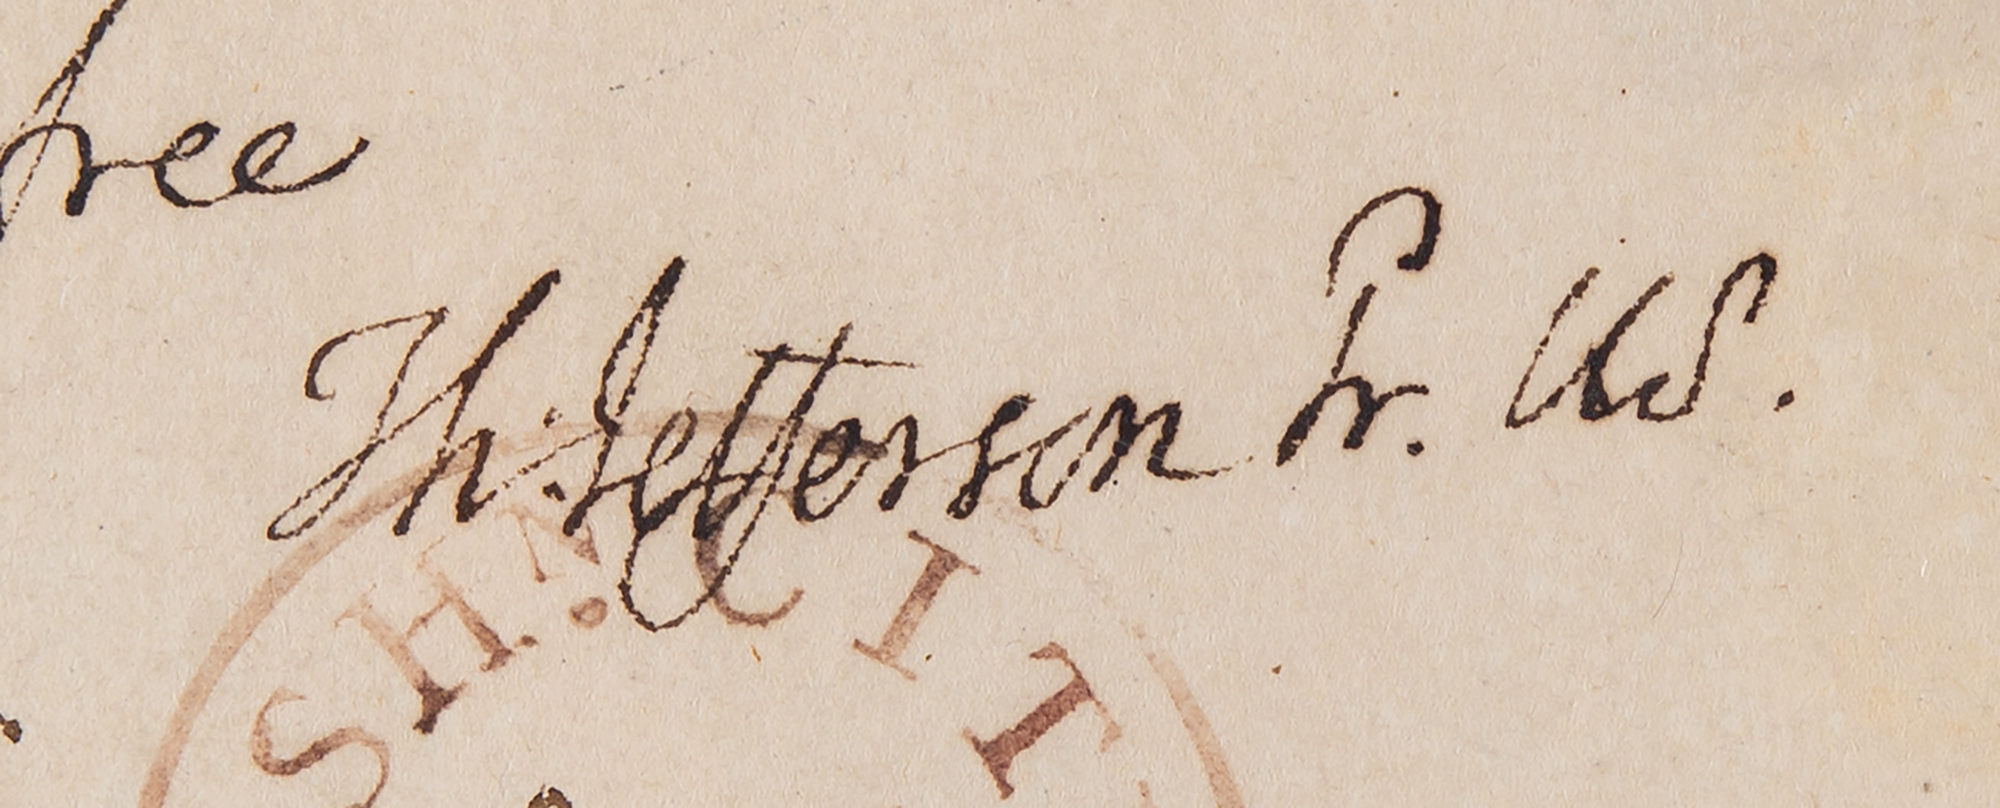 free
Th: Jefferson Pr. US.
SH.N CIT